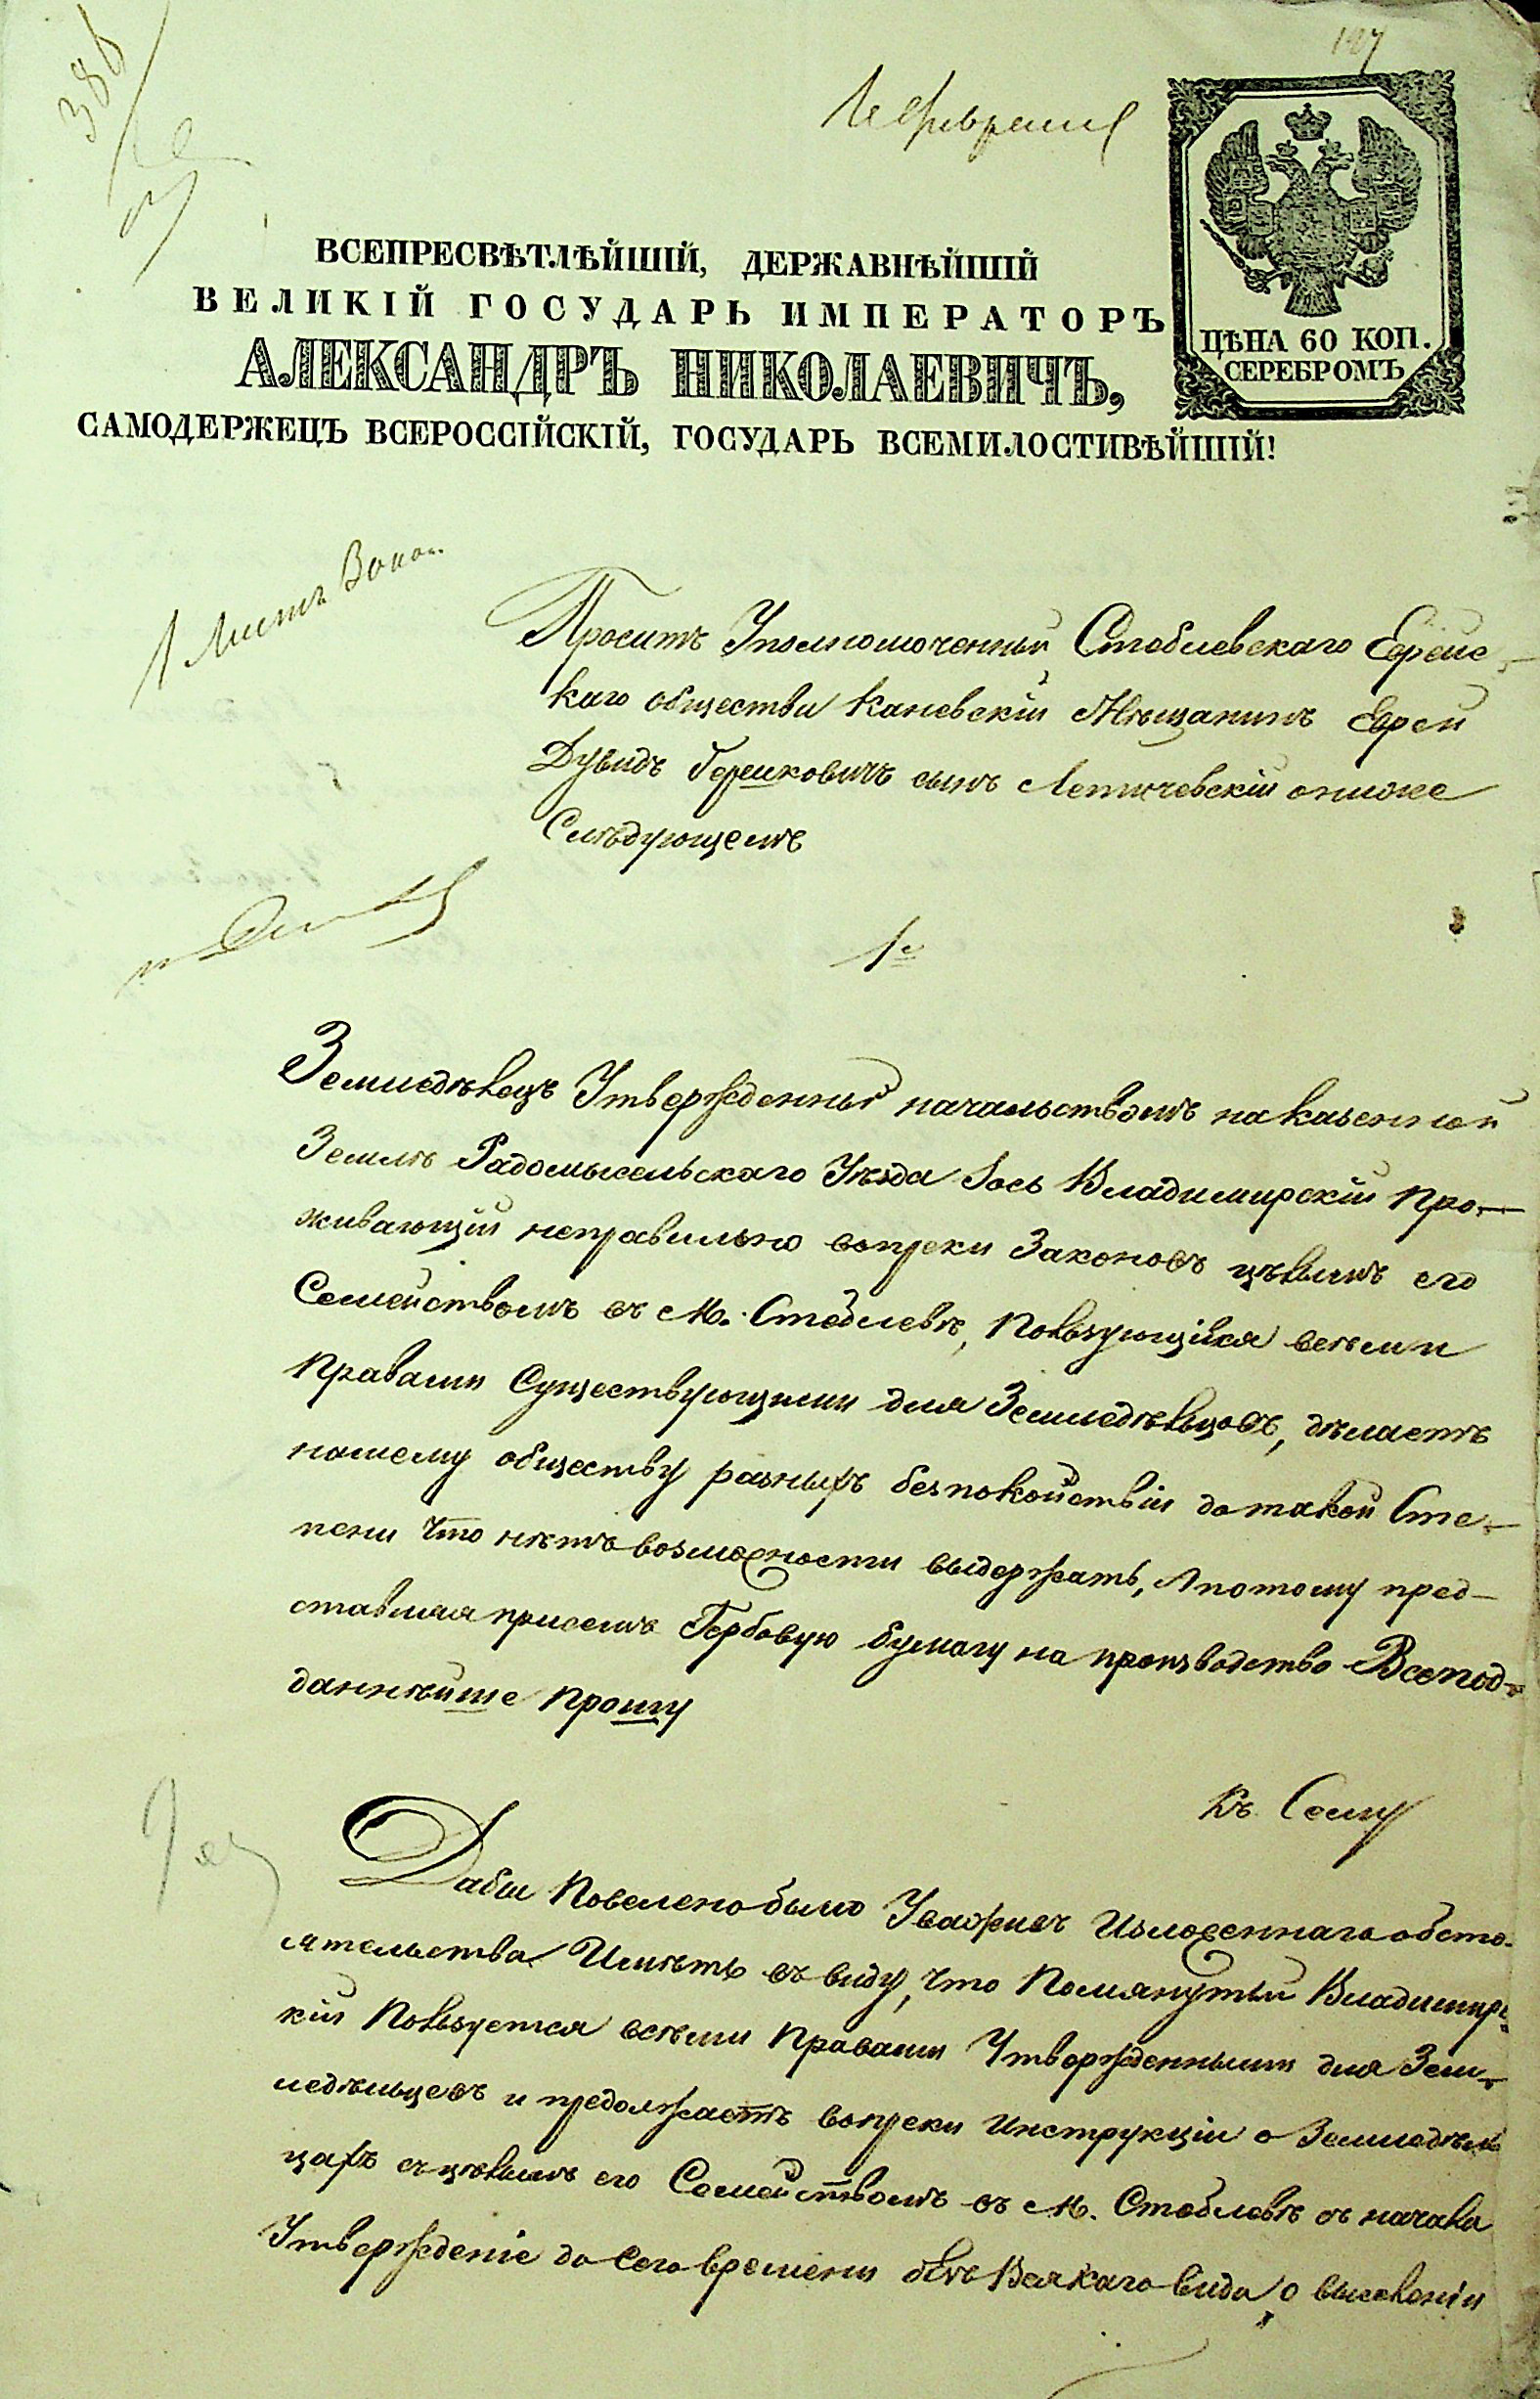 386
107
Февраля
ЦѢНА 60 КОП.
СЕРЕБРОМЪ
ВСЕПРЕСВѢТЛѢЙШІЙ, ДЕРЖАВНѢЙШІЙ
ВЕЛИКІЙ ГОСУДАРЬ ИМПЕРАТОРЪ
АЛЕКСАНДРЪ НИКОЛАЕВИЧЪ,
САМОДЕРЖЕЦЪ ВСЕРОССІЙСКІЙ, ГОСУДАРЬ ВСЕМИЛОСТИВѢЙШІЙ!
Листъ
Проситъ Уполномоченный Стеблевскаго Еврейс-
каго общества Каневскій Мѣщанинъ Еврей
Дувидъ Гершковичъ сынъ Летичевскій о ниже
Слѣдующемъ
1е
Земледѣлецъ Утвержденный начальствомъ на казенной
Землѣ Радомысельскаго Уѣзда Іось Владимирскій про-
живающій неправильно вопреки Законовъ цѣлымъ его
Семействомъ въ М. Стеблевѣ, Пользующійся всѣми
Правами Существующими для Земледѣльцовъ, дѣлаетъ
нашему обществу разныхъ безпокойствіи до такой Сте-
пени Что нѣтъ возможности выдержать, А потому пред-
ставляя присемъ Гербовую бумагу на производство Всепод-
даннѣйше прошу
Къ Сему
Дабы Повелено было Уваживъ Изложеннаго обсто-
ятельства Имѣть въ виду, что Помянутый Владимирс-
кій Пользуется всѣми Правами Утвержденными для Зем-
ледѣльцевъ и продолжаетъ вопреки Инструкціи о Земледѣль
цахъ съ цѣлымъ его Семействомъ въ М. Стеблевѣ съ начала
Утвержденіе до Сего времени безъ Всякаго вида о выселеніи